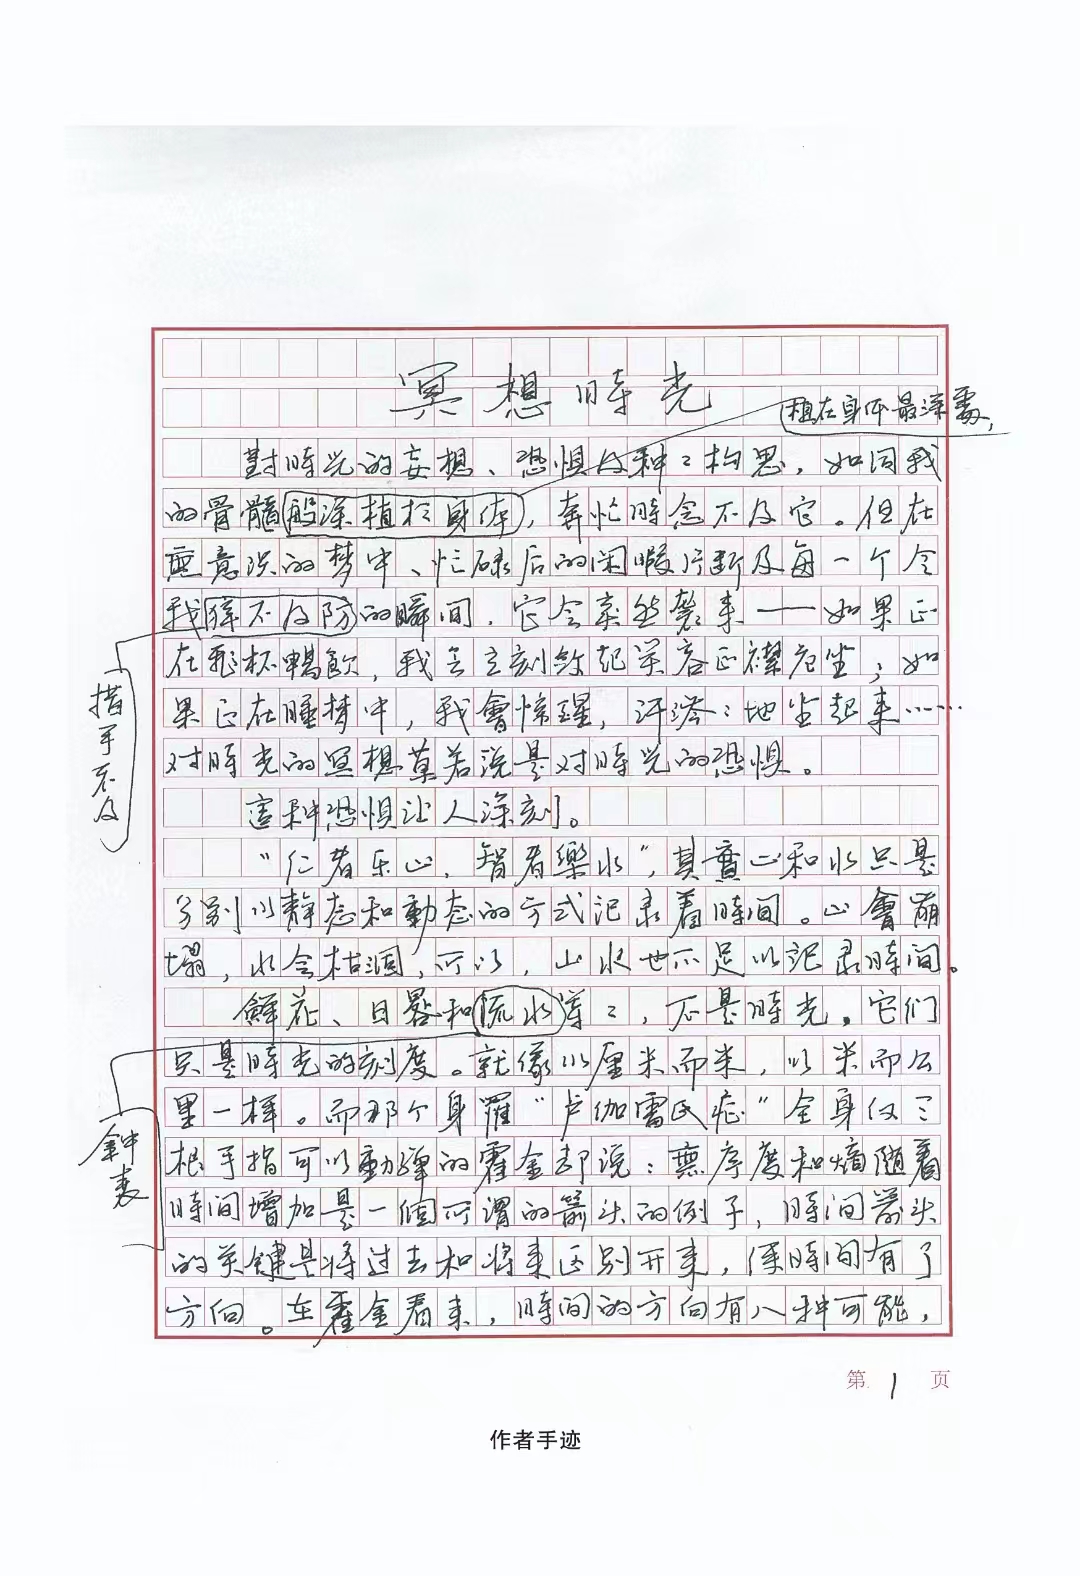 冥想時光
植在身体最深處，
對時光的妄想、恐惧及种々构思，如同我
的骨髓般深植於身体，奔忙時念不及它。但在
無意识的梦中、忙碌后的闲暇片断及每一个令
我猝不及防的瞬间，它会突然袭来——如果正
在飛杯暢飲，我会立刻敛起笑容正襟危坐；如
果正在睡梦中，我會惊醒，汗涔々地坐起来……
对時光的冥想莫若说是对時光的恐惧。
這种恐惧让人深刻。
“仁者乐山，智者樂水”，其實山和水只是
分别以静态和動态的方式记录着時间。山會崩
塌，水会枯涸，可以，山水也不足以记录時间。
鲜花、日晷和流水等々，不是時光。它们
只是時光的刻度。就像以厘米而米，以米而公
里一样。而那个身罹“卢伽雷氏症”全身仅三
根手指可以動弹的霍金却说：無序度和熵随着
時间增加是一個可谓的箭头的例子，時间箭头
的关键是将过去和将来区别开来，使時间有了
方向。在霍金看来，時间的方向有八种可能，
措手不及
鈡表
第1页
作者手迹